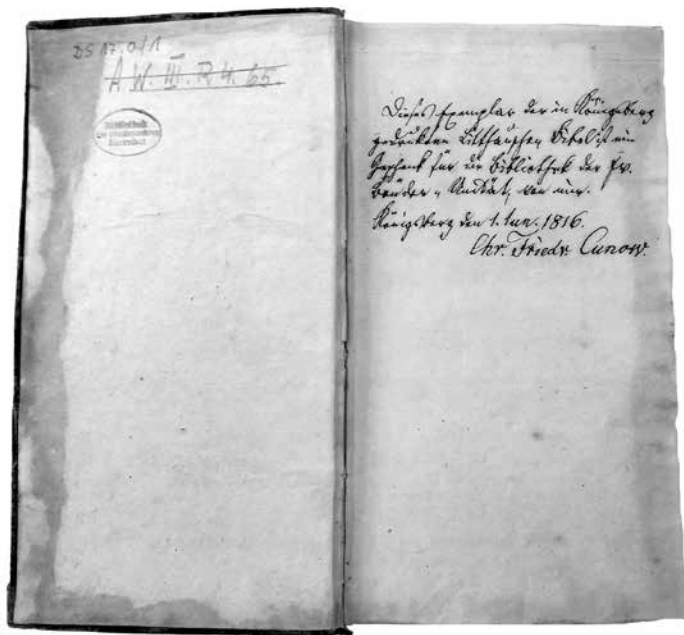 DS 17.0/1
A W. III. R. 4. 65.
Bibliothek
Herrnhut
Dieses Exemplar der in Königsberg
gedrukten Litthauschen Bibel ist ein
Geschenk für die Bibliothek der Ev.
Brüder-Unität, von mir.
Königsberg den 1. Jun. 1816.
Chr. Friedr. Cunow.